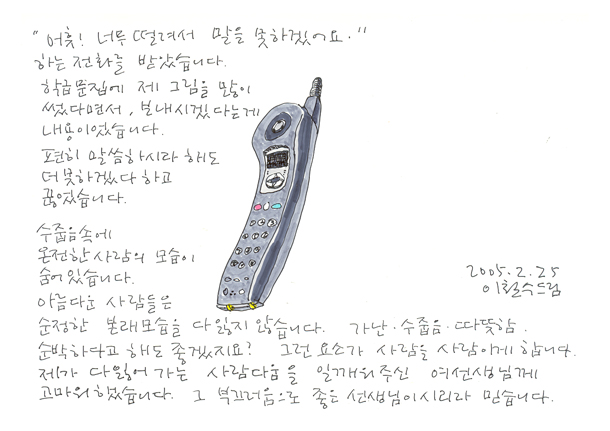 "어휴! 너무 떨려서 말을 못하겠어요."
하는 전화를 받았습니다.
학급문집에 제 그림을 많이
썼다면서, 보내시겠다는게
내용이었습니다.
편히 말씀하시라 해도
더 못하겠다 하고
끊었습니다.
수줍음속에
온전한 사람의 모습이
숨어있습니다.
아름다운 사람들은
순정한 본래모습을 다 잃지 않습니다. 가난·수줍음·따뜻함·
순박하다고 해도 좋겠지요? 그런 요소가 사람을 사람이게 합니다.
제가 다 잃어 가는 사람다움을 일깨워주신 여선생님께
고마워했습니다. 그 부끄러움으로 좋은 선생님이시리라 믿습니다.
2005. 2. 25
이철수드림